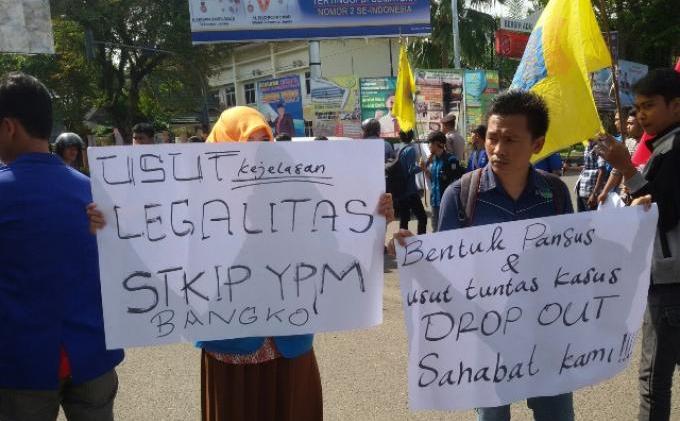 NOMOR 2 SE-INDONESIA
USUT kejelasan
LEGALITAS
STKIP YPM
BANGKO
Bentuk Pansus
&
usut tuntas kasus
DROP OUT
Sahabat kami!!!